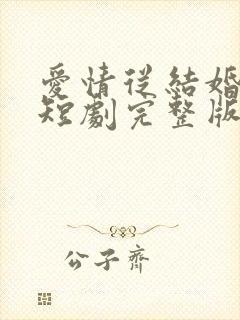 愛情從結婚
短劇完整版
公子齊